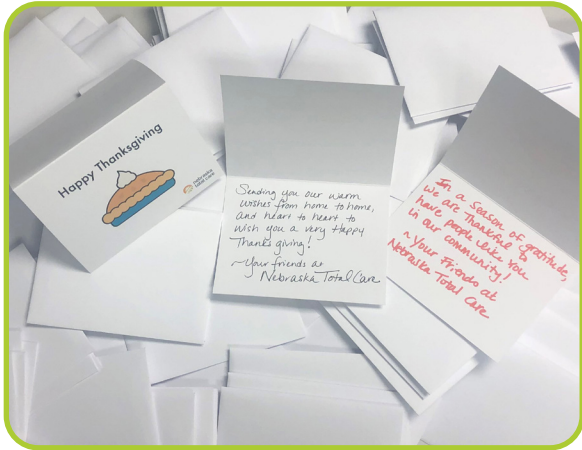 Happy Thanksgiving
nebraska
total care
Sending you our warm
wishes from home to home,
and heart to heart to
wish you a very Happy
Thanksgiving!
~Your friends at
Nebraska Total Care
In a season of gratitude,
we are Thankful to
have people like you
in our community!
~ Your Friends at
Nebraska Total Care